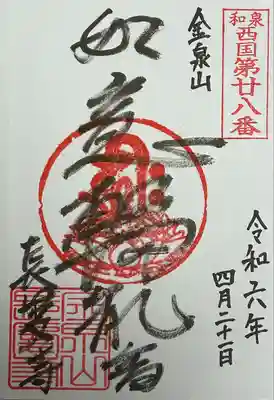 和泉
西国第廿八番
金泉山
令和六年
四月二十一日
如意輪
長慶寺